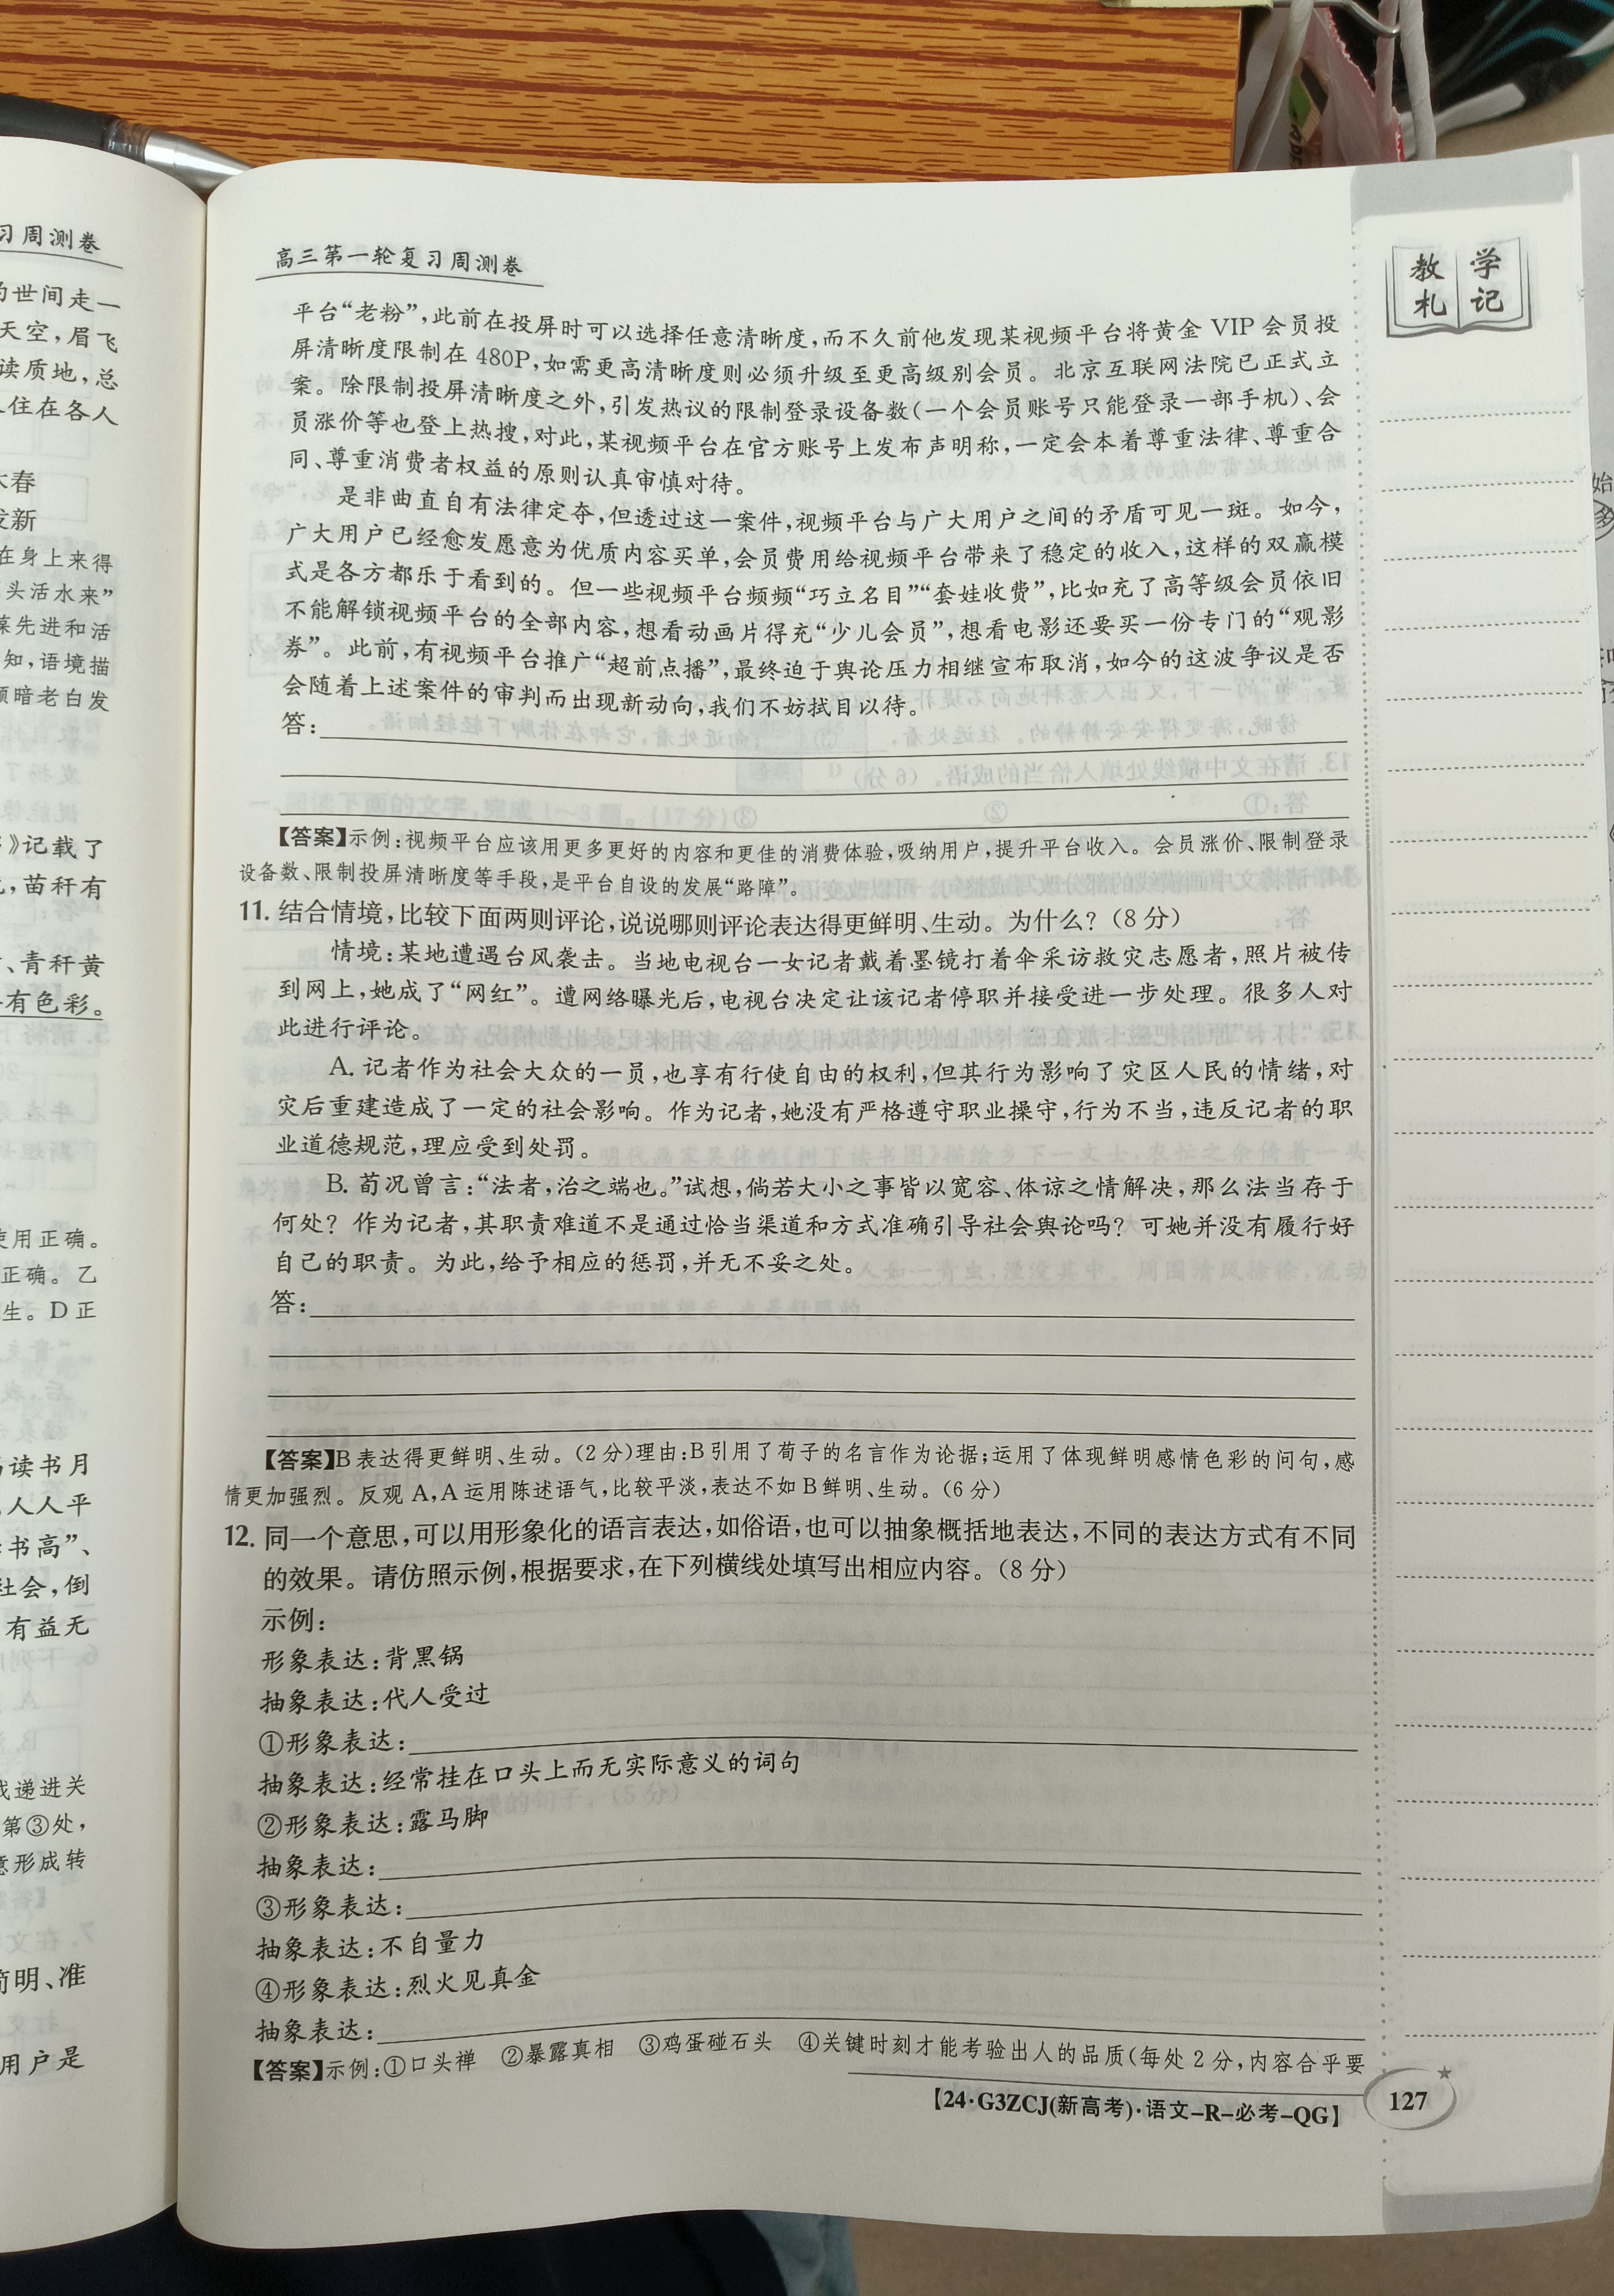 习周测卷
的世间走一
天空，眉飞
读质地，总
住在各人
在身上来得
头活水来”
知，语境描
颜暗老白发
》记载了
，苗秆有
、青秆黄
有色彩。
使用正确。
正确。乙
生。D正
读书月
人人平
书高”、
社会，倒
有益无
递进关
第③处，
意形成转
简明、准
用户是
高三第一轮复习周测卷
教学
札记
平台“老粉”，此前在投屏时可以选择任意清晰度，而不久前他发现某视频平台将黄金VIP会员投
屏清晰度限制在480P，如需更高清晰度则必须升级至更高级别会员。北京互联网法院已正式立
案。除限制投屏清晰度之外，引发热议的限制登录设备数（一个会员账号只能登录一部手机）、会
员涨价等也登上热搜，对此，某视频平台在官方账号上发布声明称，一定会本着尊重法律、尊重合
同、尊重消费者权益的原则认真审慎对待。
是非曲直自有法律定夺，但透过这一案件，视频平台与广大用户之间的矛盾可见一斑。如今，
广大用户已经愈发愿意为优质内容买单，会员费用给视频平台带来了稳定的收入，这样的双赢模
式是各方都乐于看到的。但一些视频平台频频“巧立名目”“套娃收费”，比如充了高等级会员依旧
不能解锁视频平台的全部内容，想看动画片得充“少儿会员”，想看电影还要买一份专门的“观影
券”。此前，有视频平台推广“超前点播”，最终迫于舆论压力相继宣布取消，如今的这波争议是否
会随着上述案件的审判而出现新动向，我们不妨拭目以待。
答：
【答案】示例：视频平台应该用更多更好的内容和更佳的消费体验，吸纳用户，提升平台收入。会员涨价、限制登录
设备数、限制投屏清晰度等手段，是平台自设的发展“路障”。
11. 结合情境，比较下面两则评论，说说哪则评论表达得更鲜明、生动。为什么？（8分）
情境：某地遭遇台风袭击。当地电视台一女记者戴着墨镜打着伞采访救灾志愿者，照片被传
到网上，她成了“网红”。遭网络曝光后，电视台决定让该记者停职并接受进一步处理。很多人对
此进行评论。
A. 记者作为社会大众的一员，也享有行使自由的权利，但其行为影响了灾区人民的情绪，对
灾后重建造成了一定的社会影响。作为记者，她没有严格遵守职业操守，行为不当，违反记者的职
业道德规范，理应受到处罚。
B. 荀况曾言：“法者，治之端也。”试想，倘若大小之事皆以宽容、体谅之情解决，那么法当存于
何处？作为记者，其职责难道不是通过恰当渠道和方式准确引导社会舆论吗？可她并没有履行好
自己的职责。为此，给予相应的惩罚，并无不妥之处。
答：
【答案】B表达得更鲜明、生动。（2分）理由：B引用了荀子的名言作为论据；运用了体现鲜明感情色彩的问句，感
情更加强烈。反观A，A运用陈述语气，比较平淡，表达不如B鲜明、生动。（6分）
12. 同一个意思，可以用形象化的语言表达，如俗语，也可以抽象概括地表达，不同的表达方式有不同
的效果。请仿照示例，根据要求，在下列横线处填写出相应内容。（8分）
示例：
形象表达：背黑锅
抽象表达：代人受过
①形象表达：
抽象表达：经常挂在口头上而无实际意义的词句
②形象表达：露马脚
抽象表达：
③形象表达：
抽象表达：不自量力
④形象表达：烈火见真金
抽象表达：
【答案】示例：①口头禅 ②暴露真相 ③鸡蛋碰石头 ④关键时刻才能考验出人的品质（每处2分，内容合乎要
【24·G3ZCJ(新高考)·语文-R-必考-QG】
127